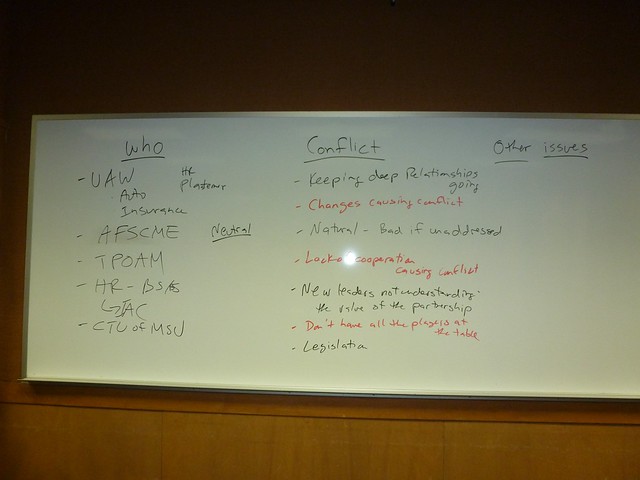 Who
- UAW
Auto
Insurance
HR
- AFSCME Neutral
- TPOAM
- HR -
- CTU of MSU
Conflict
- Keeping deep Relationships
going
- Changes causing conflict
- Natural - Bad if unaddressed
- Lack of cooperation
causing conflict
- New leaders not understanding
the value of the partnership
- Don't have all the players at
the table
- Legislation
Other issues